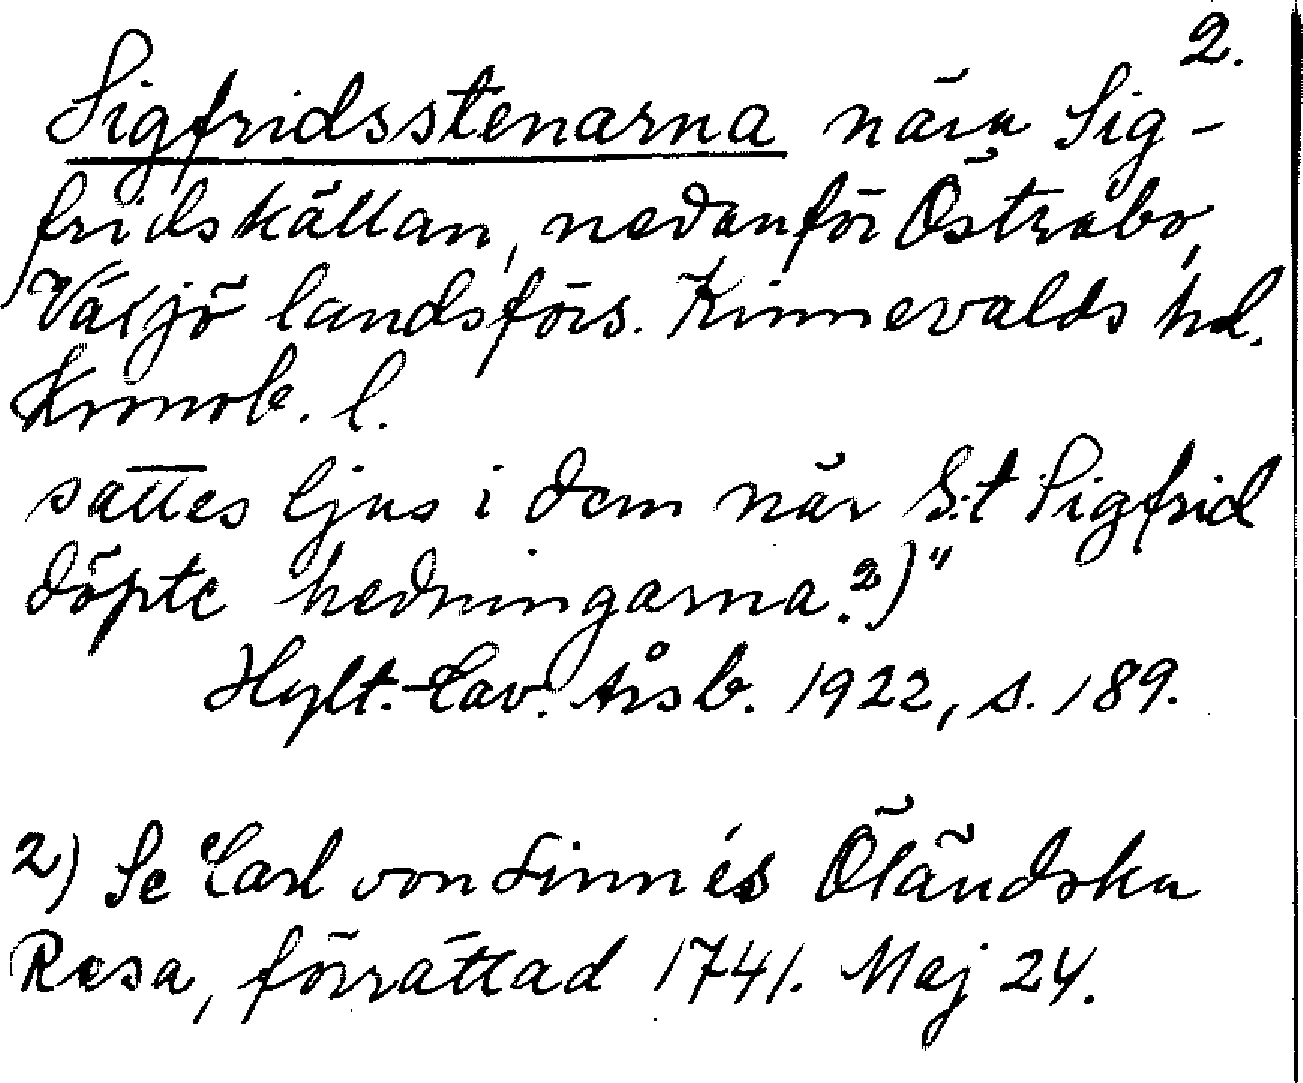 2.
Sigfridsstenarna nära Sig-
fridskällan, nedanför Östrabo,
Växjö landsförs. Kinnevalds hd.
Kronob. l.
sattes ljus i dem när S:t Sigfrid
döpte hedningarna.2)"
Hylt.-Cav. Årsb. 1922, s. 189.
2) Se Carl von Linnés Öländska
Resa, förrättad 1741. Maj 24.